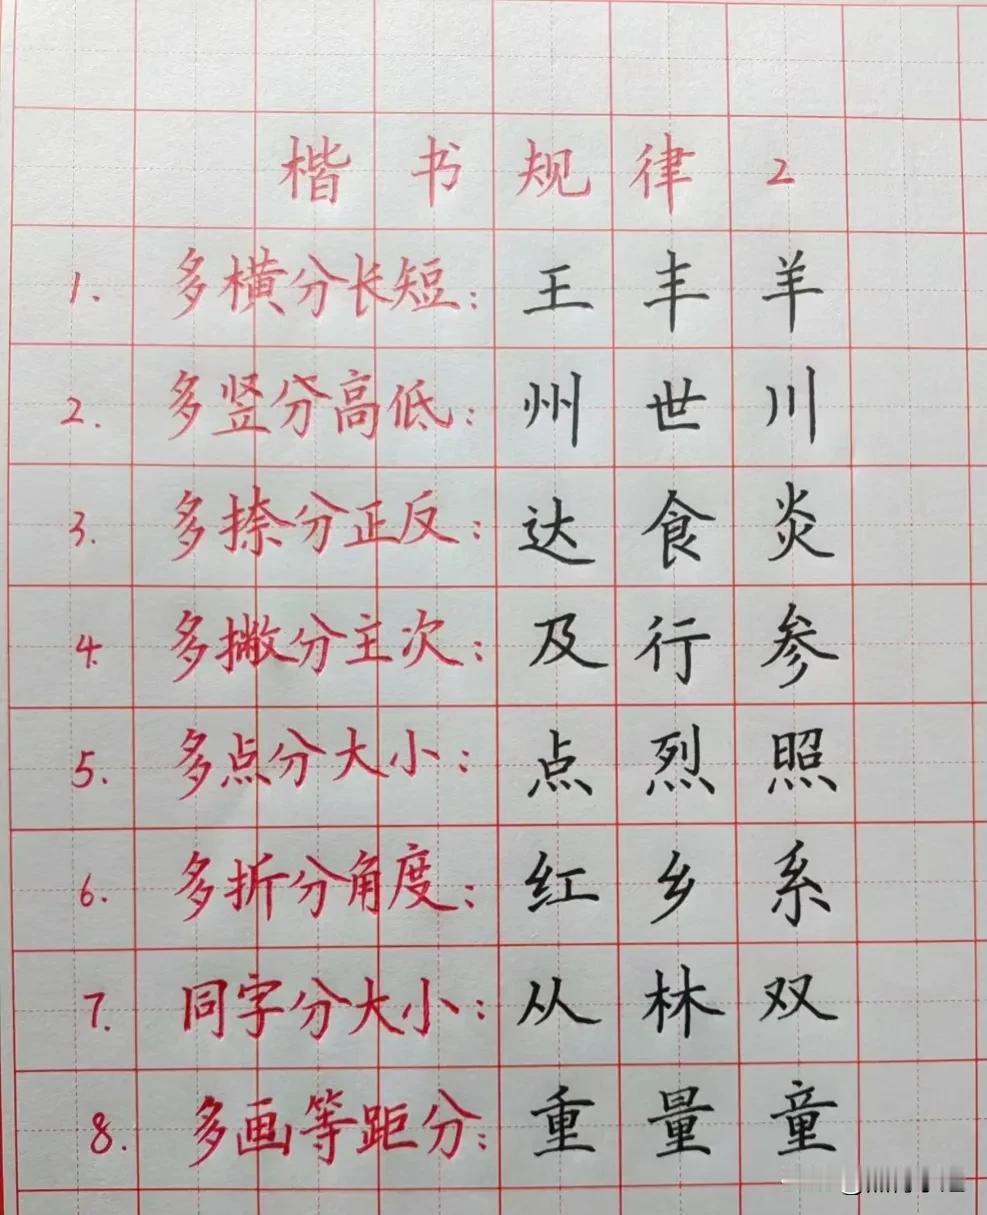 楷书规律2
1. 多横分长短: 王 丰 羊
2. 多竖分高低: 州 世 川
3. 多捺分正反: 达 食 炎
4. 多撇分主次: 及 行 参
5. 多点分大小: 点 烈 照
6. 多折分角度: 红 乡 系
7. 同字分大小: 从 林 双
8. 多画等距分: 重 量 童